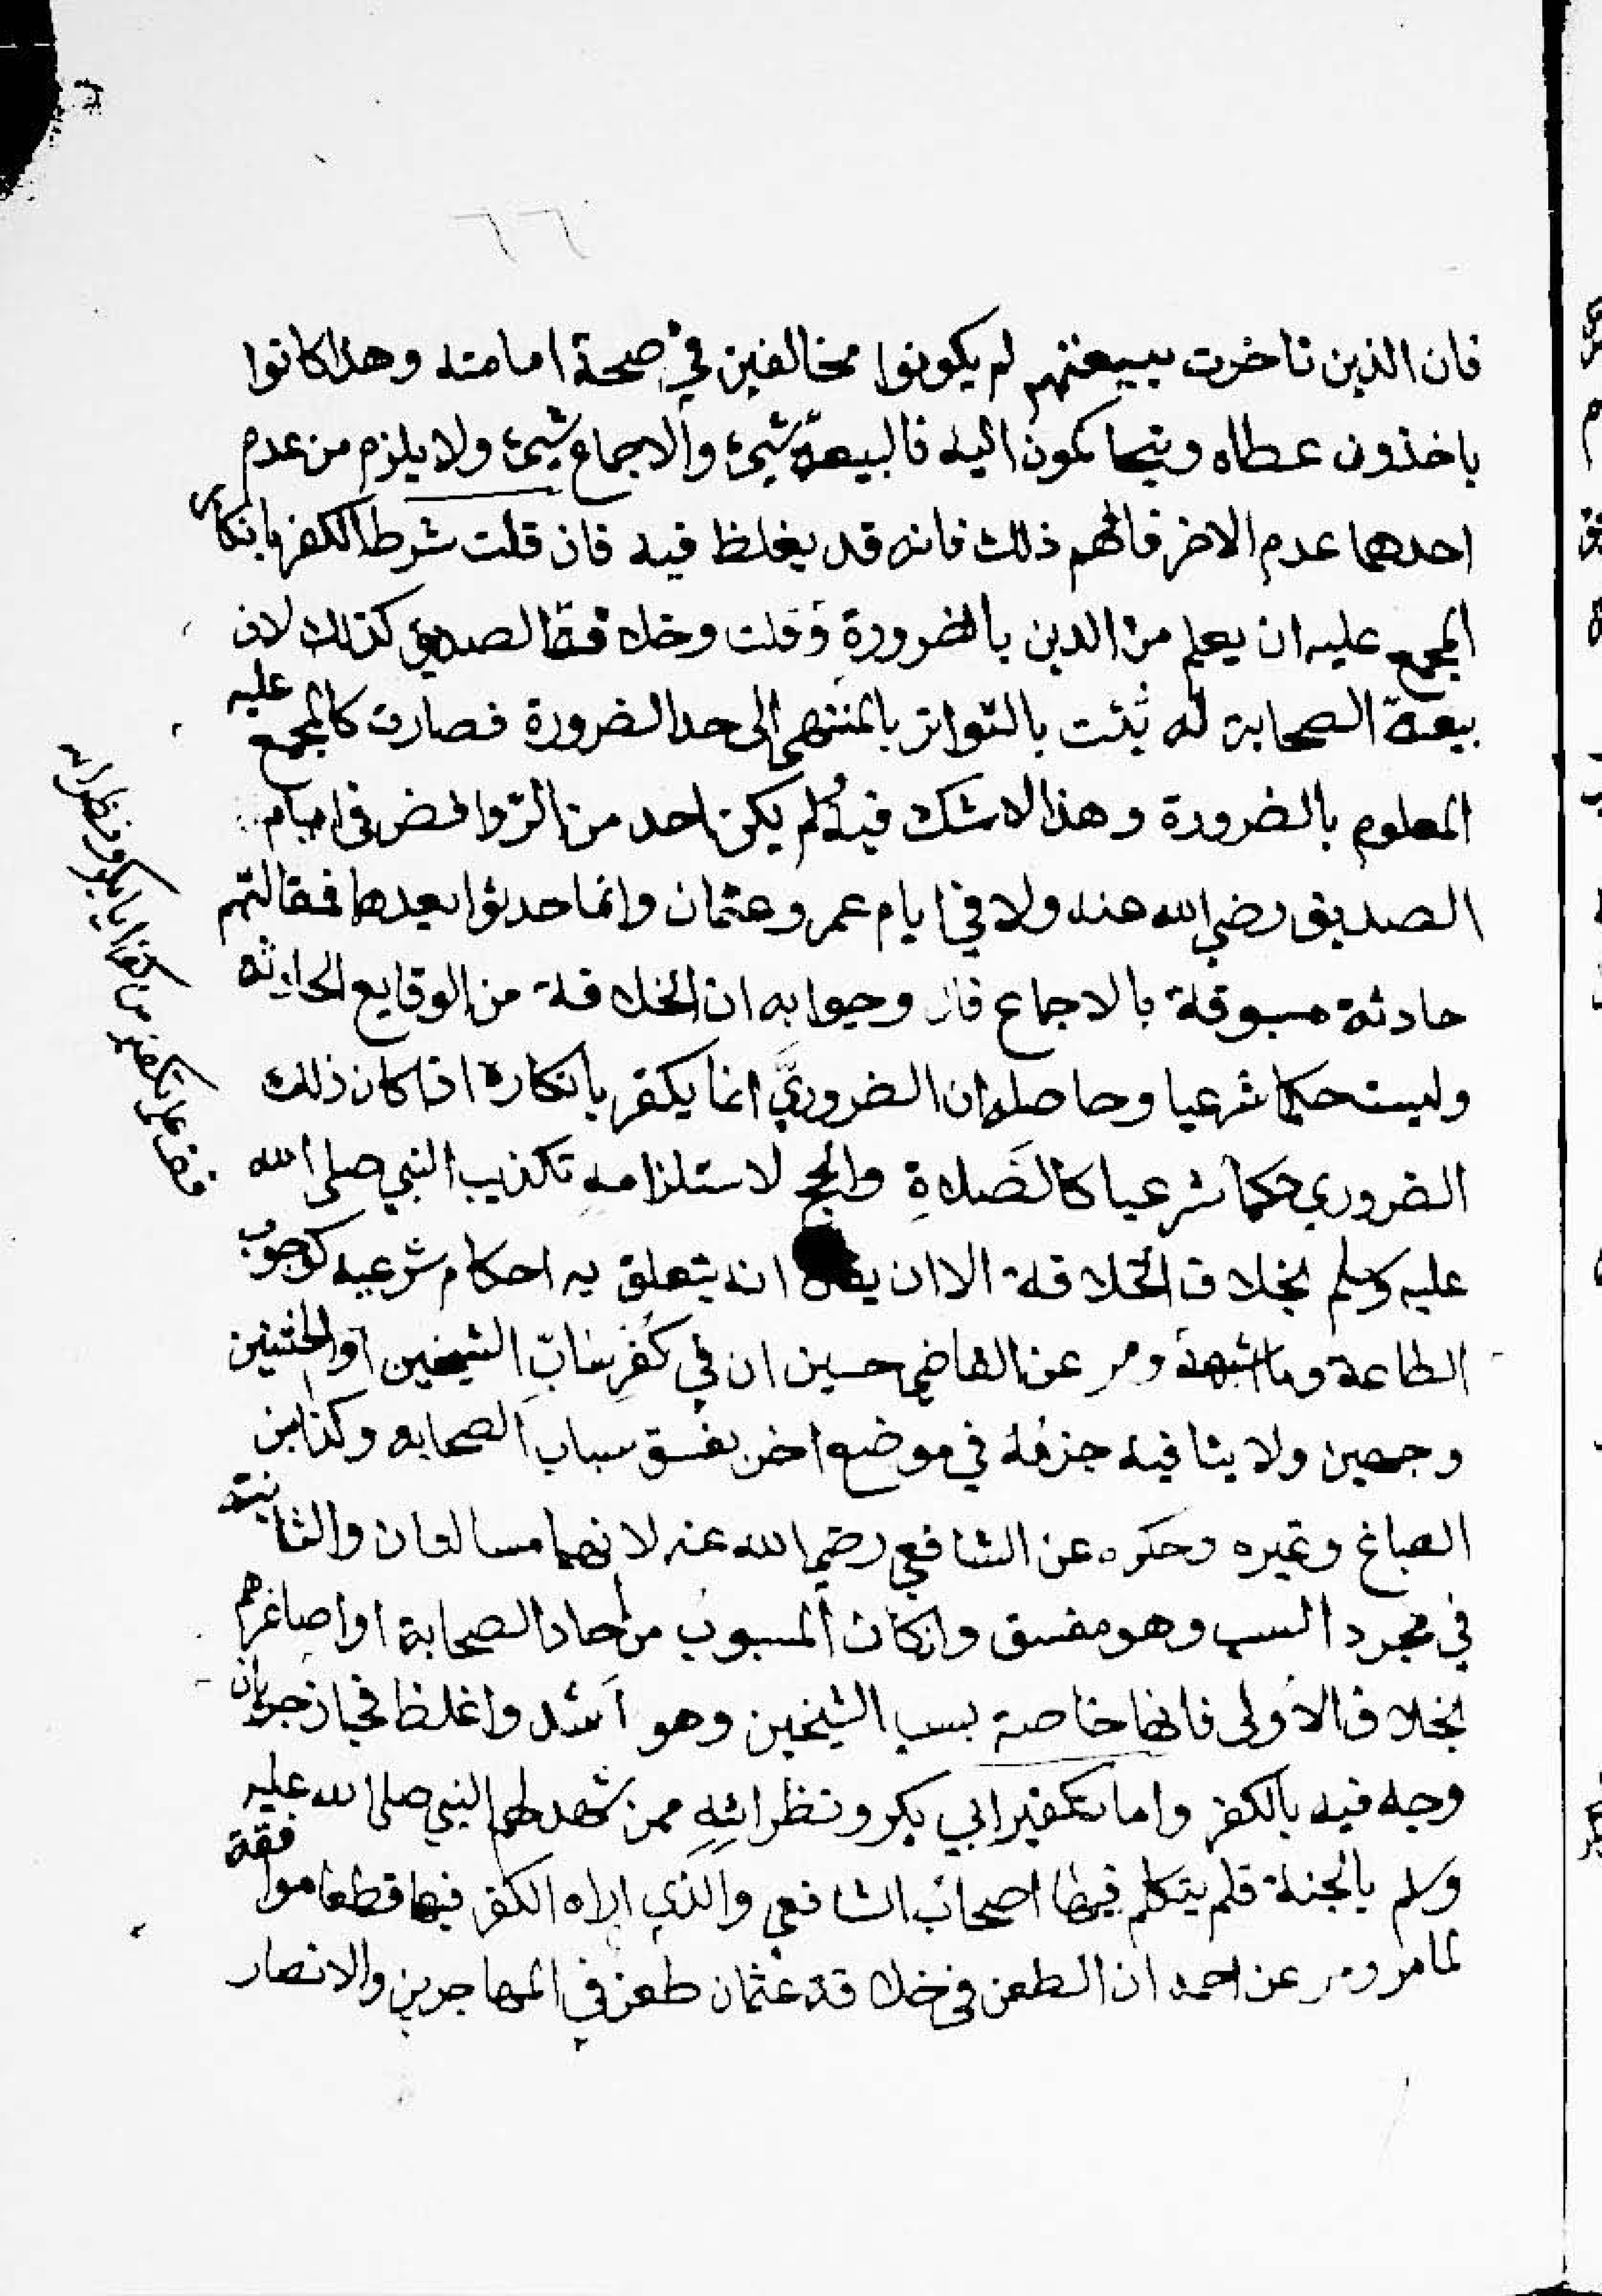 ٦٦
فان الذين تاخرت ببيعتهم لم يكونوا مخالفين في صحة امامته وهذا كانوا
ياخذون عطاه ويتحاكمون اليه فالبيعة شيئ والاجماع شيئ ولا يلزم من عدم
احدهما عدم الاخر فافهم ذلك فانه قد يغلظ فيه فان قلت شرط الكفر بانكار
المجمع عليه ان يعلم من الدين بالضرورة وقلت وخلافة الصديق كذلك لان
بيعة الصحابة له ثبتت بالتواتر بالمنتهي الى حد الضرورة فصارت كالمجمع عليه
المعلوم بالضرورة وهذا لا شك فيه ولم يكن احد من الروافض في ايام
الصديق رضي الله عنه ولا في ايام عمر وعثمان وانما حدثوا بعدها فمقالتهم
حادثة مسبوقة بالاجماع وجوابه ان الخلافة من الوقايع الحادثة
وليست حكما شرعيا وحاصله ان الضروري انما يكفر بانكاره اذا كان ذلك
الضروري حكما شرعيا كالصلاة والحج لاستلزامه تكذيب النبي صلى الله
عليه وسلم بخلاف الخلافة الا ان انه يتعلق به احكام شرعيه كوجوب
الطاعة وما اشبهه ومر عن القاضي حسين ان في كفر ساب الشيخين او الختنين
وجهين ولا ينافيه جزمه في موضع اخر بفسق سباب الصحابه وكذا ابن
الصباغ وغيره وحكوه عن الشافعي رضي الله عنه لانهما مسالتان والثانية
في مجرد السب وهو مفسق وان كان المسبوب من احاد الصحابة او اصاغرهم
بخلاف الاولى فانها خاصة بسب الشيخين وهو اشد واغلظ فجاز جريان
وجه فيه بالكفر واما تكفير ابي بكر ونظرائه ممن شهد لهم النبي صلى الله عليه
وسلم بالجنة فلم يتكلم فيها اصحاب الشافعي والذي اراه الكفر فيها قطعا موافقة
لما مر ومر عن احمد ان الطعن في خلافة عثمان طعن في المهاجرين والانصار
قف على تكفير من كفر ابا بكر ونظرائه